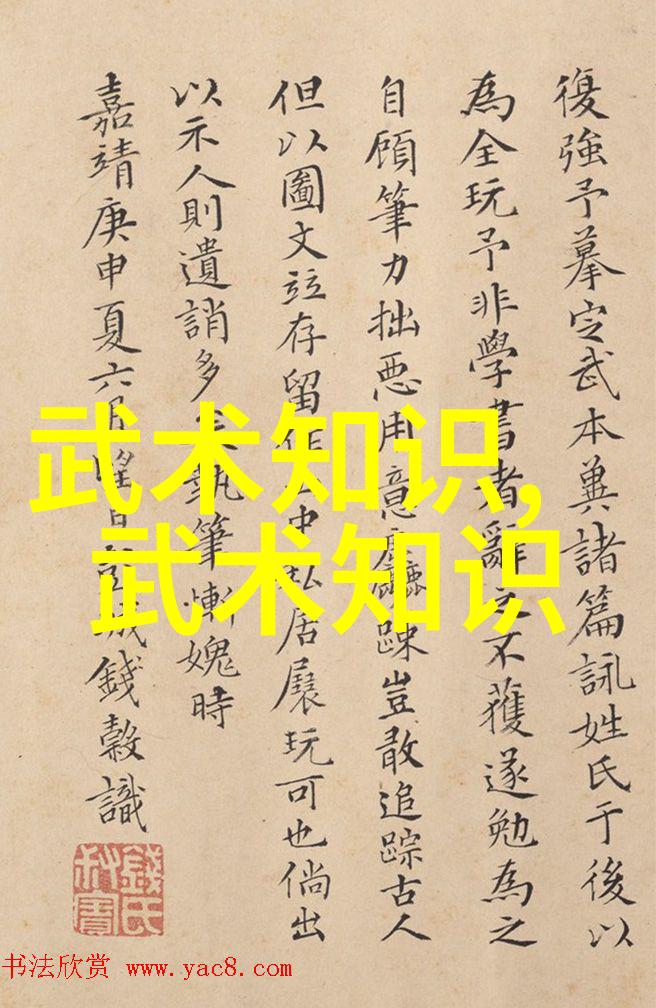 復強予摹定武本兼諸篇詠姓氏于後以
為全玩予非學書者辭之不獲遂勉為之
自顧筆力拙惡用意麤踈豈敢追踪古人
但以圖文竝存留作中私居展玩可也倘出
以示人則遺誚多矣執筆慚媿時
嘉靖庚申夏六月曜日彭城錢榖識
錢氏叔寶
武术知识,
武术知识
书法欣赏 www.yac8.com